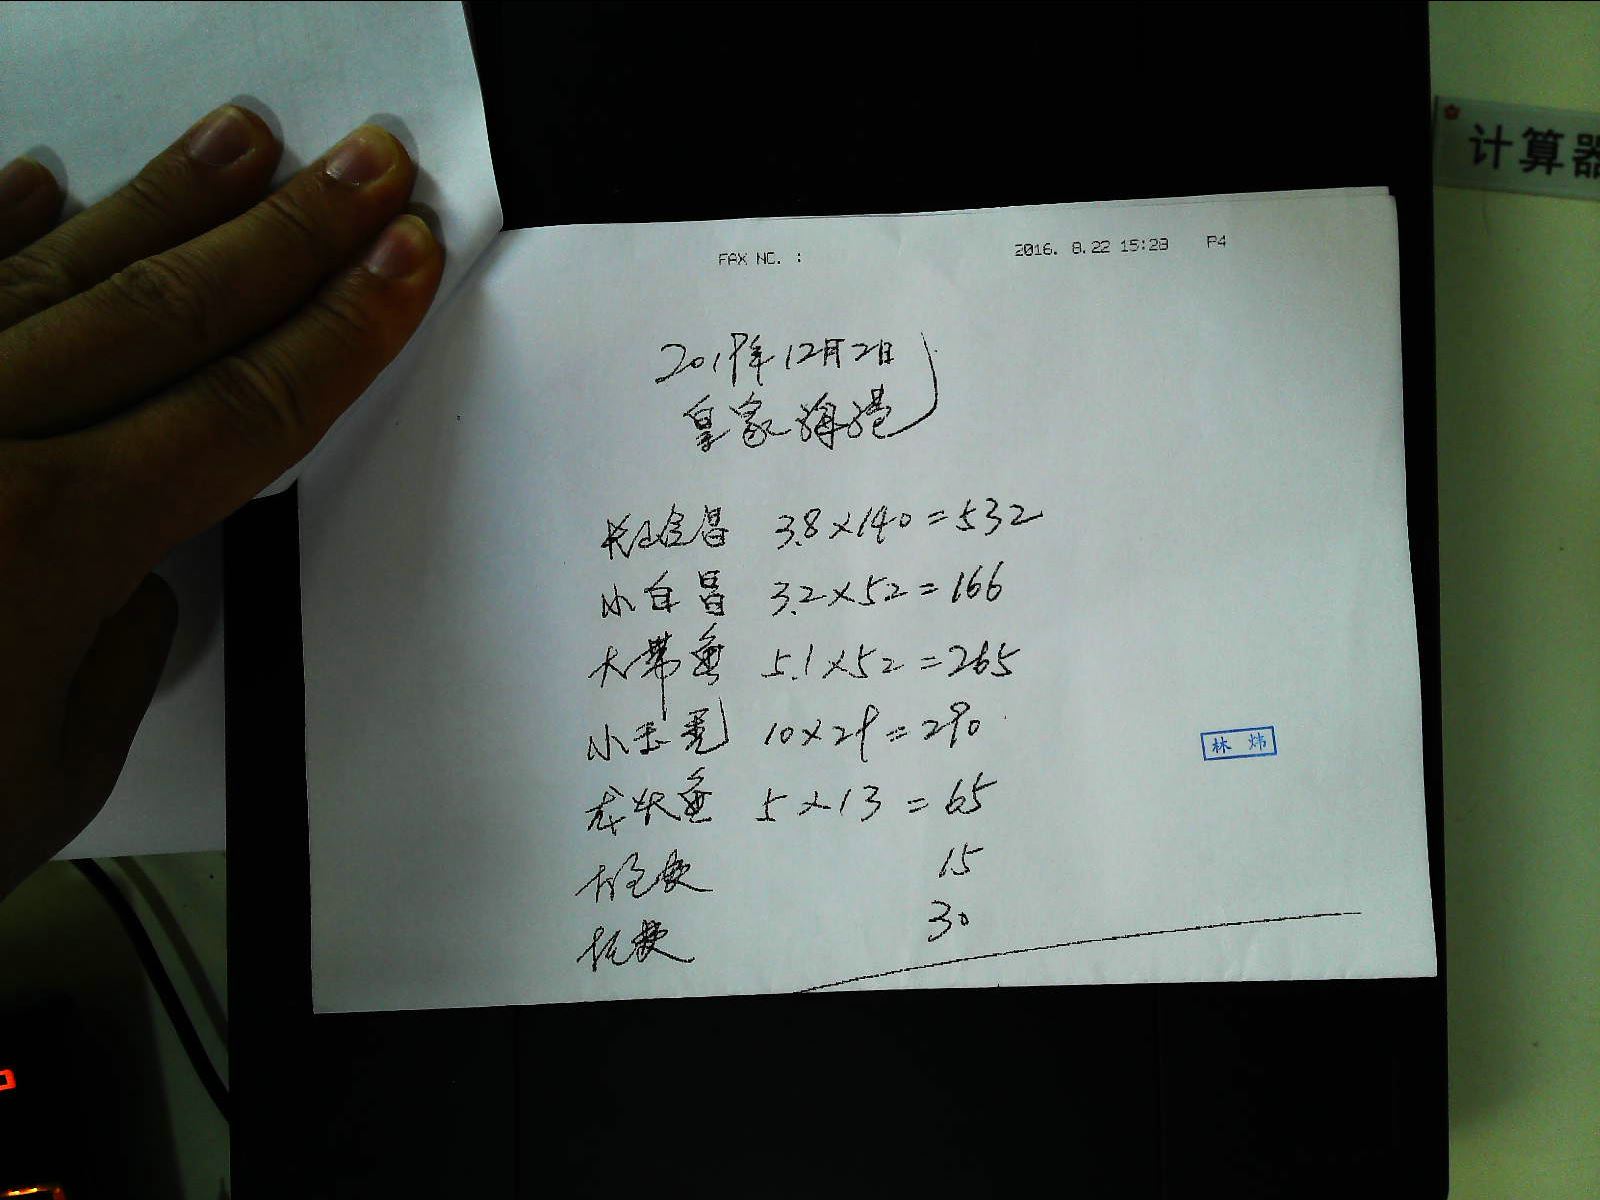 计算器
FAX NO. :
2016. 8.22 15:28 P4
2019年12月2日
皇家海港
3.8×140=532
小白昌 3.2×52=166
大带鱼 5.1×52=265
小玉秃 10×29=290
龙头鱼 5×13=65
15
30
林 炜